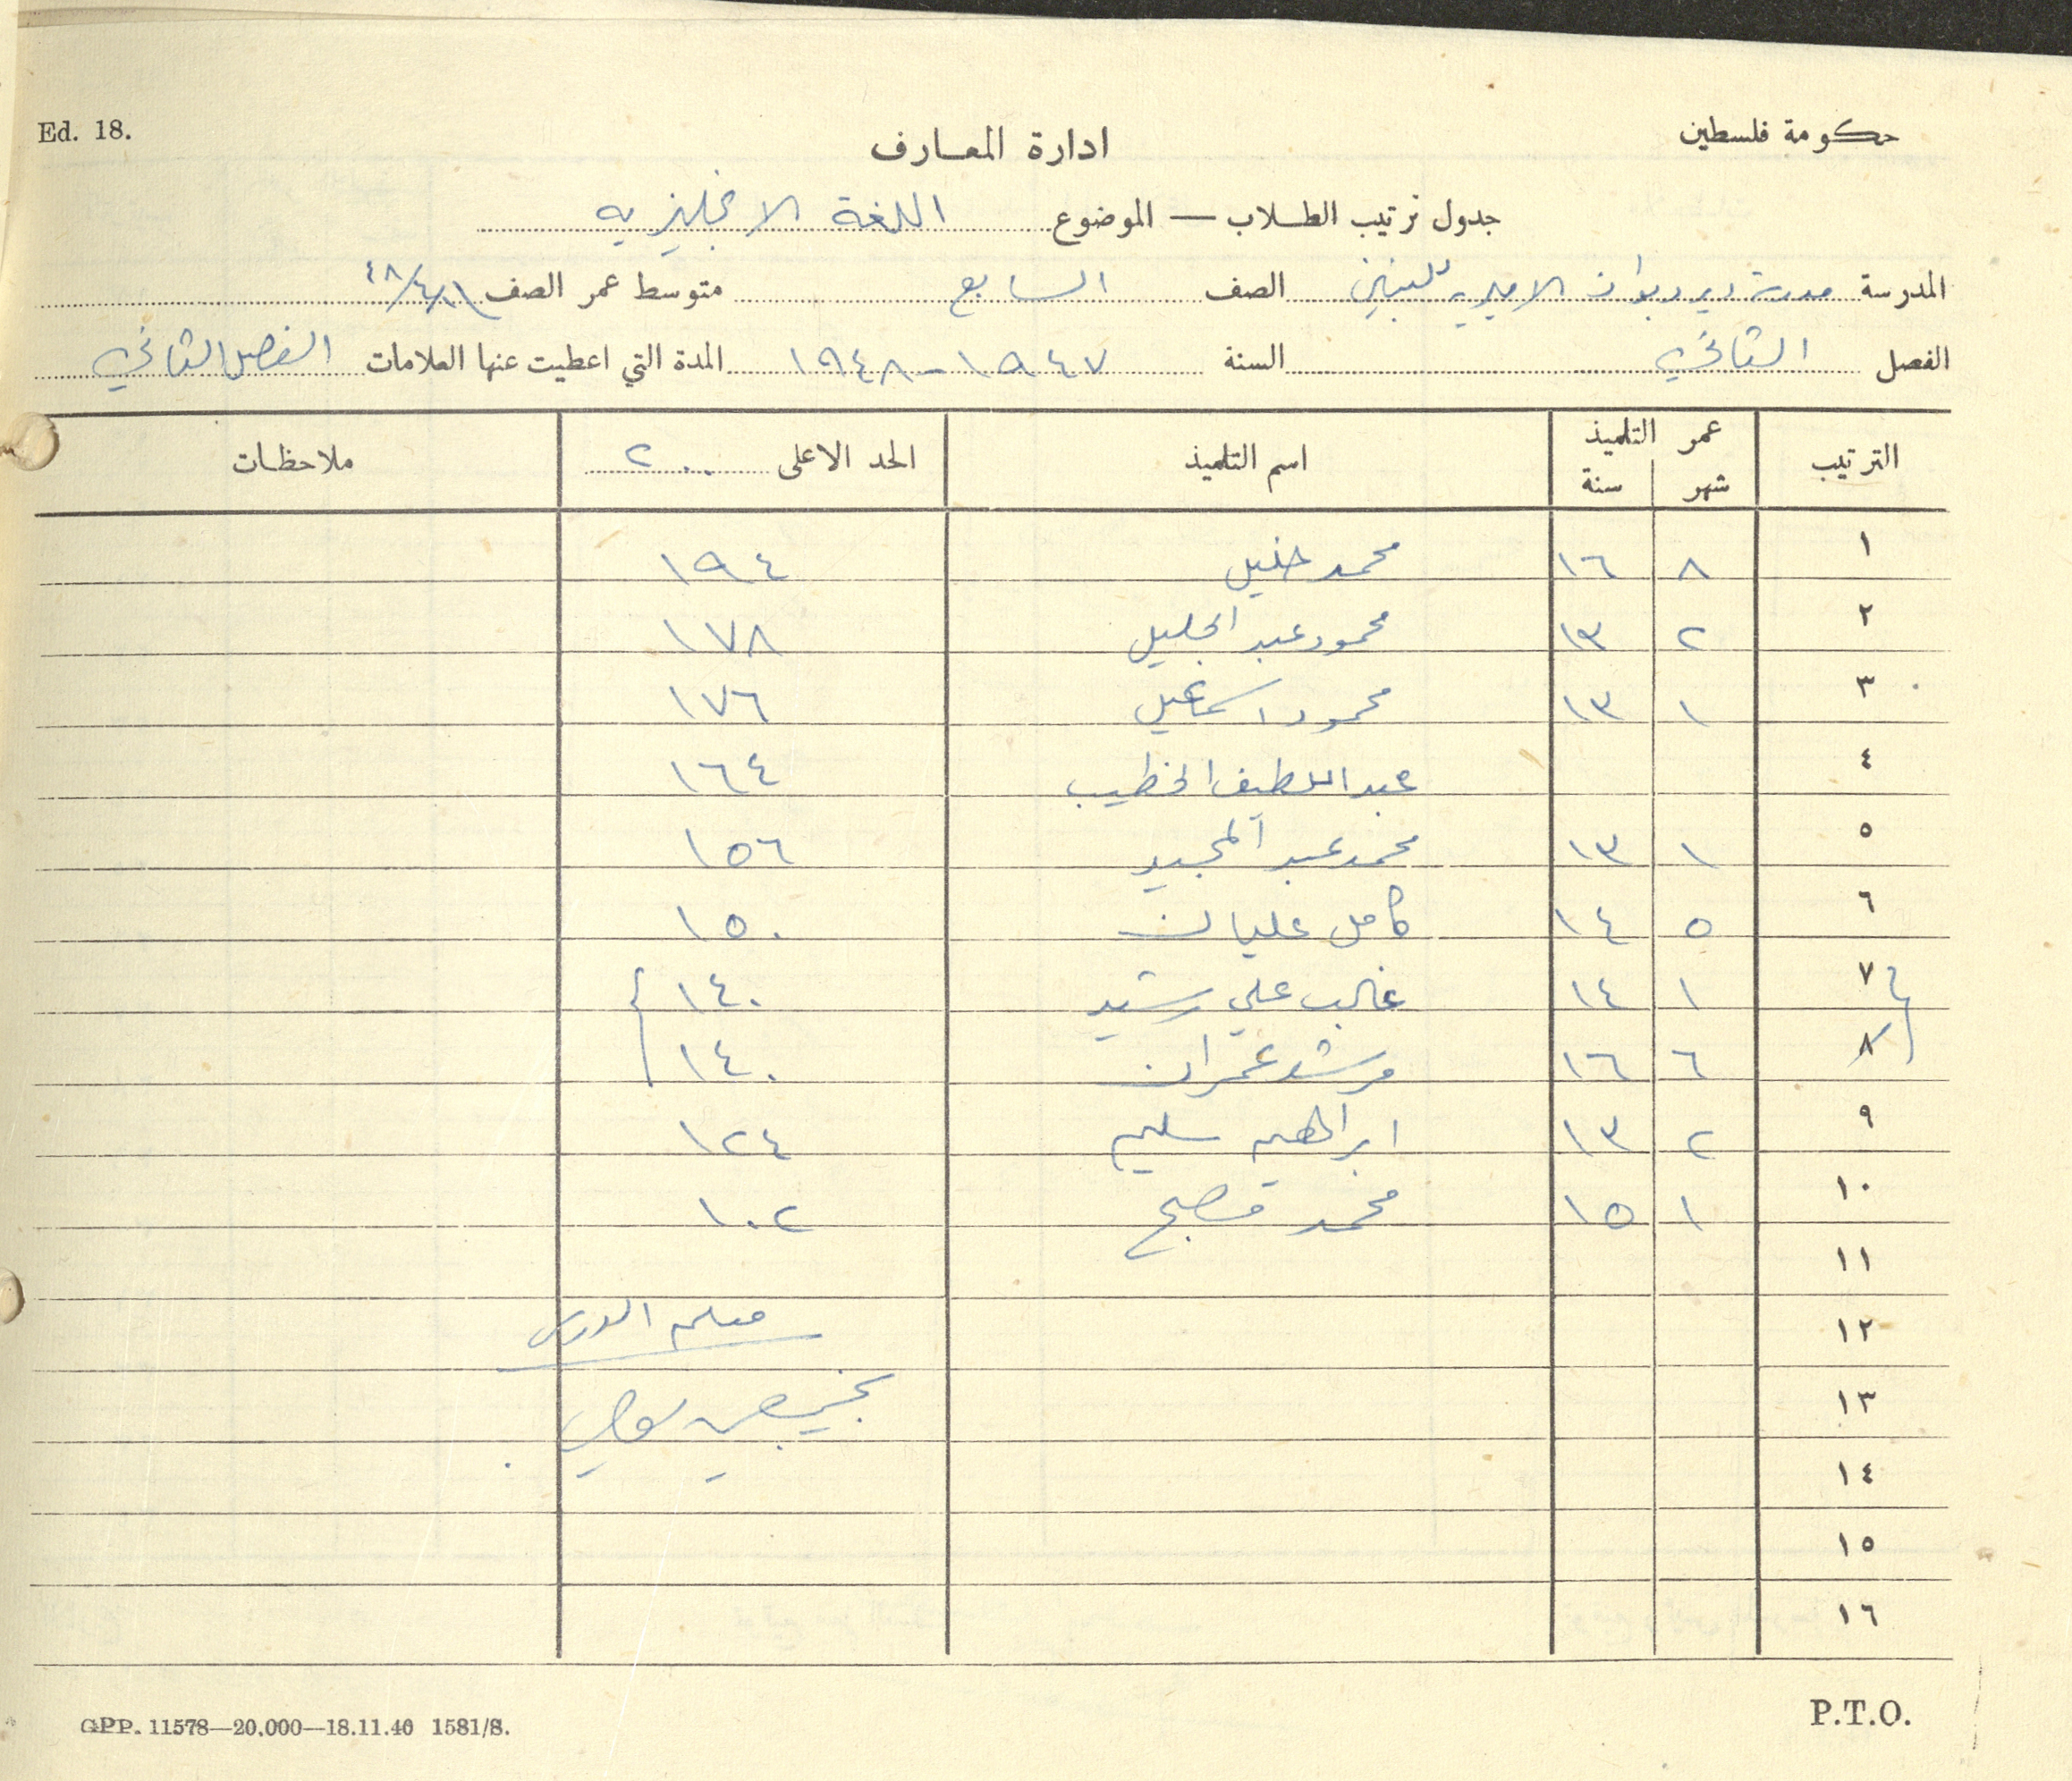 Ed. 18.
حكومة فلسطين
ادارة المعارف
جدول ترتيب الطلاب — الموضوع اللغة الانجليزيه
المدرسة مدرسة ديردبوان الاميريه للبنين الصف السابع متوسط عمر الصف ٤٨/٤/١١
الفصل الثاني السنة ١٩٤٧-١٩٤٨ المدة التي اعطيت عنها العلامات الفصل الثاني
الترتيب عمر التلميذ شهر سنة اسم التلميذ الحد الاعلى ٢٠٠ ملاحظات
١ ٨ ١٦ محمد خليل ١٩٤
٢ ٢ ١٣ محمود عبد الجليل ١٧٨
٣ ١ ١٣ محمود اسماعيل ١٧٦
٤ عبد اللطيف الخطيب ١٦٤
٥ ١ ١٣ محمد عبد المجيد ١٥٦
٦ ٥ ١٤ كامل عليان ١٥٠
٧ ١ ١٤ غالب علي رشيد ١٤٠
٨ ٦ ١٦ مرشد عمران ١٤٠
٩ ٢ ١٣ ابراهيم سليم ١٢٤
١٠ ١ ١٥ محمد مصبح ١٠٢
١١
١٢ معلم الدرس
١٣
١٤
١٥
١٦
GPP. 11578—20.000—18.11.40 1581/S.
P.T.O.